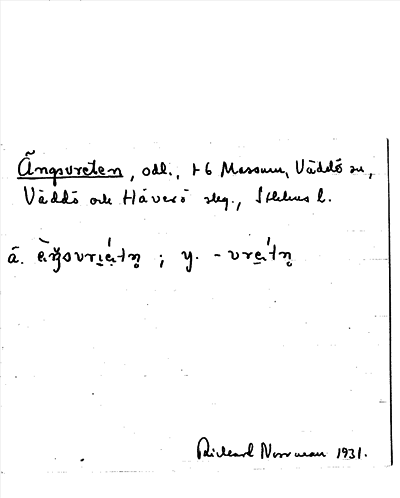 Ängsvreten, odl., 1-6 Massum, Väddö sn,
Väddö och Häverö skg., Sthlms l.
ä. ; y.
Rickard Norrman 1931.